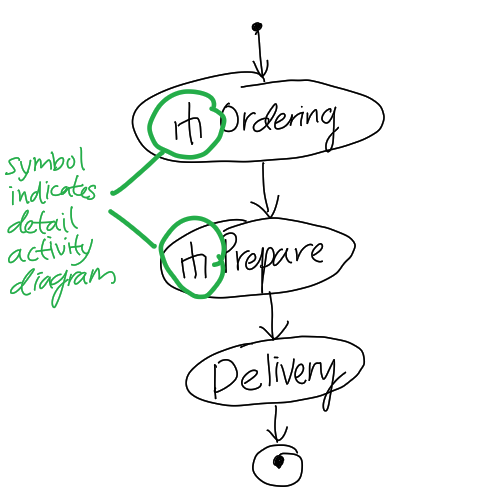 Ordering
symbol
indicates
detail
activity
diagram
Prepare
Delivery